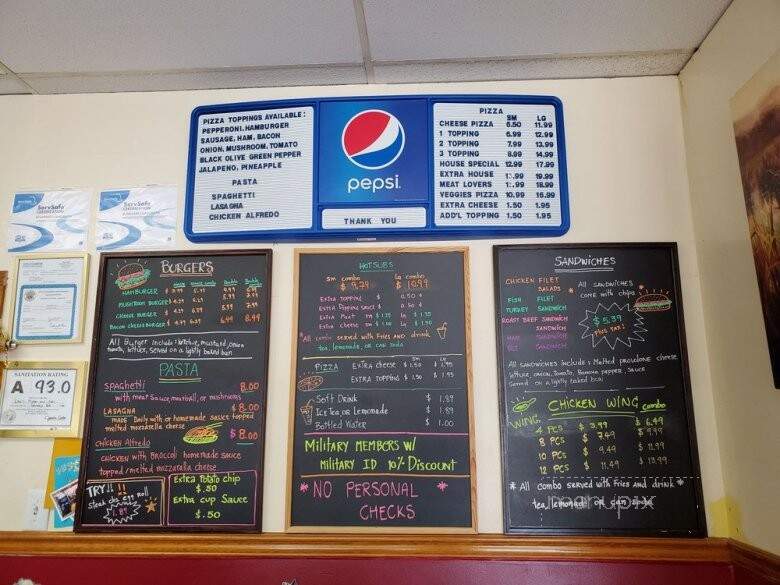 PIZZA TOPPINGS AVAILABLE:
PEPPERONI, HAMBURGER
SAUSAGE, HAM, BACON
ONION, MUSHROOM, TOMATO
BLACK OLIVE GREEN PEPPER
JALAPENO, PINEAPPLE
PASTA
SPAGHETTI
LASAGNA
CHICKEN ALFREDO
pepsi
THANK YOU
PIZZA
SM LG
CHEESE PIZZA 6.50 11.99
1 TOPPING 6.99 12.99
2 TOPPING 7.99 13.99
3 TOPPING 8.99 14.99
HOUSE SPECIAL 12.99 17.99
EXTRA HOUSE 19.99
MEAT LOVERS 18.99
VEGGIES PIZZA 10.99 16.99
EXTRA CHEESE 1.50 1.95
ADD'L TOPPING 1.50 1.95
ServSafe
ServSafe
SANITATION RATING
A 93.0
BURGERS
HAMBURGER
MUSHROOM BURGER
CHEESE BURGER
BACON CHEESEBURGER
All Burger include: ketchup, mustard, onion
tomato, lettuce, served on a lightly baked bun
PASTA
SPAGHETTI 8.00
with meat sauce, meatball, or mushrooms
LASAGNA $8.00
MADE Daily with or homemade sauce topped
melted mozzarella cheese
CHICKEN Alfredo $8.00
CHICKEN with BROCCOLI homemade sauce
topped/melted mozzarella cheese
TRY!!
steak chz egg roll
1.89
Extra Potato chip
$.50
Extra cup Sauce
$.50
HOTSUBS
Sm combo La combo
$9.79 $10.99
Extra Topping $ .50 ¢
Extra Dipping sauce $ .50 ¢
Extra Meat sm $1.75 La
Extra cheese sm La $1.95
*All combo served with Fries AND drink
tea, lemonade, or can soda
PIZZA Extra cheese $1.50 $1.95
EXTRA TOPPING $1.50 $1.95
Soft Drink $ 1.89
Ice Tea or Lemonade $ 1.89
Bottled Water $ 1.00
MILITARY MEMBERS W/
MILITARY ID 10% DISCOUNT
*NO PERSONAL *
CHECKS
SANDWICHES
CHICKEN FILET
SALADS
FISH FILET
TURKEY SANDWICH
ROAST BEEF SANDWICH
HAM SANDWICH
SANDWICH
* All SANDWICHES
come with chips
$5.39
plus tax!
All sandwiches include: Melted provolone cheese
lettuce, onion, Tomato, Banana pepper, Sauce
Served on a lightly baked bun
CHICKEN WING combo
WING
4 PCS $ 3.99 $ 6.49
8 PCS $ 7.49 $ 9.99
10 PCS $ 9.49 $ 11.99
12 PCS $ 11.49 $ 13.99
* All combo served with fries AND drink *
tea, lemonade or can soda
menupix